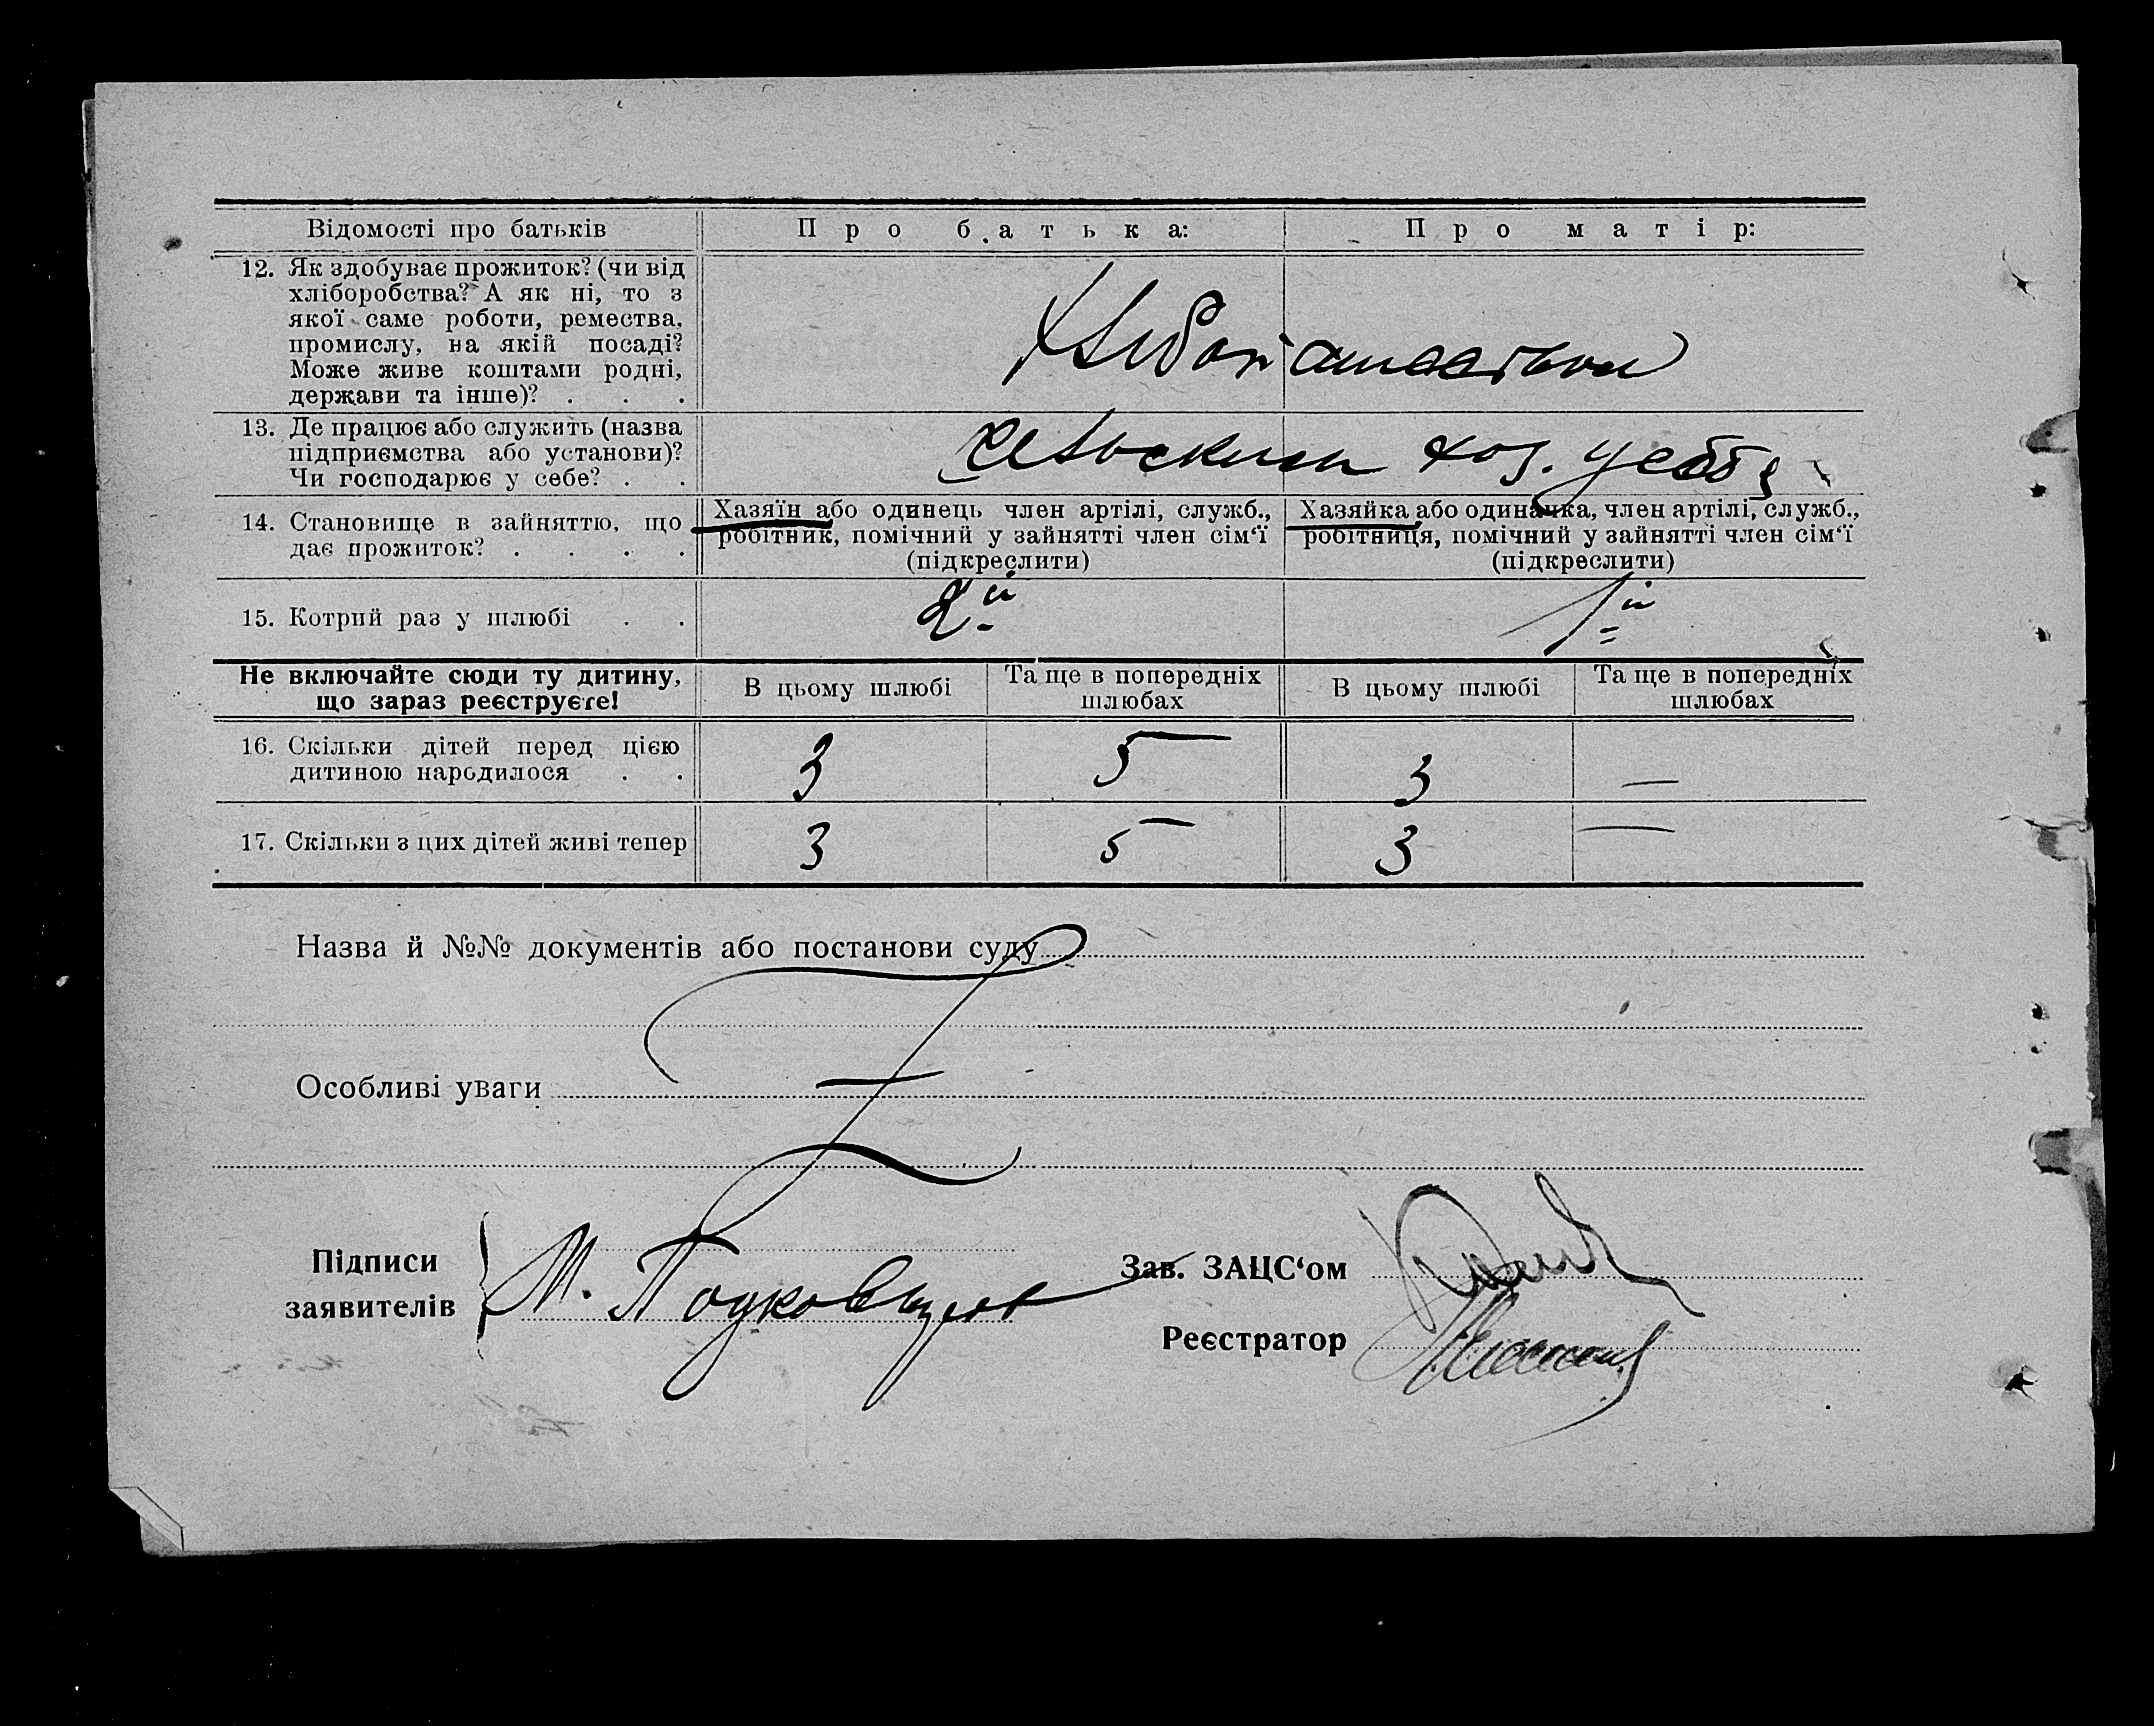 Відомості про батьків
Про батька:
Про матір:
12. Як здобуває прожиток? (чи від
хліборобства? А як ні, то з
якої саме роботи, ремества,
промислу, на якій посаді?
Може живе коштами родні,
держави та інше)? . . .
Хлібопашеством
13. Де працює або служить (назва
підприємства або установи)?
Чи господарює у себе? . .
сельским хоз. у себя
14. Становище в зайняттю, що
дає прожиток? . . . .
Хазяїн або одинець член артілі, служб.,
робітник, помічний у зайнятті член сім'ї
(підкреслити)
Хазяйка або одиначка, член артілі, служб.,
робітниця, помічний у зайнятті член сім'ї
(підкреслити)
15. Котрий раз у шлюбі . .
2й
1й
Не включайте сюди ту дитину,
що зараз реєструєте!
В цьому шлюбі
Та ще в попередніх
шлюбах
В цьому шлюбі
Та ще в попередніх
шлюбах
16. Скільки дітей перед цією
дитиною народилося . .
3
5
3
—
17. Скільки з цих дітей живі тепер
3
5
3
—
Назва й №№ документів або постанови суду
Особливі уваги
Підписи
заявителів
М.
Зав. ЗАЦС'ом
Реєстратор